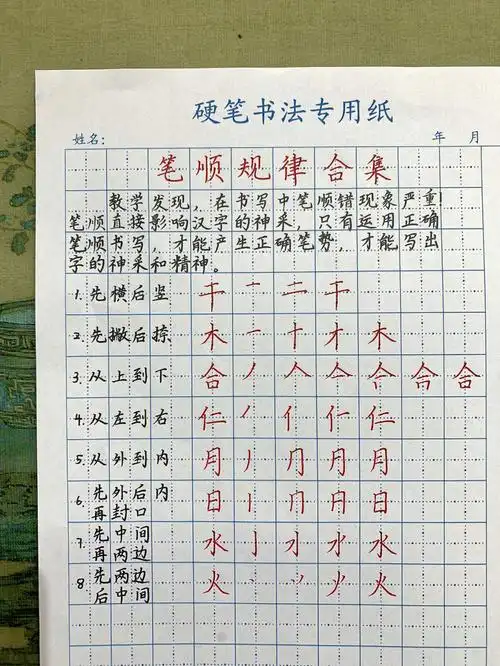 硬笔书法专用纸
姓名: 年 月
笔顺规律合集
教学发现,在书写中笔顺错现象严重!
笔顺直接影响汉字的神采,只有运用正确
笔顺书写,才能产生正确笔势,才能写出
字的神采和精神。
1.先横后竖 干 一 二 干
2.先撇后捺 木 一 十 才 木
3.从上到下 合 丿 人 亼 合 合 合
4.从左到右 仁 丿 亻 仁 仁
5.从外到内 月 丿 冂 月 月
6.先外后内 日 丨 冂 日 日
再封口
7.先中间 水 亅 水 水
再两边
8.先两边 火 丶 丷 火 火
后中间